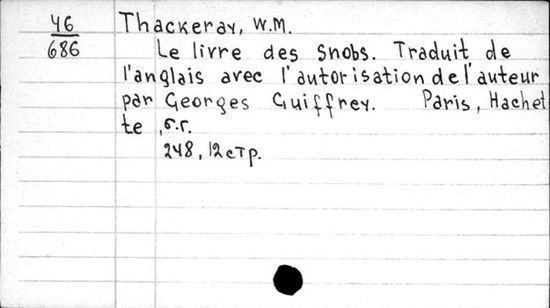 46 Thackeray, W.M.
686 Le livre des Snobs. Traduit de
l'anglais avec l'autorisation de l'auteur
par Georges Guiffrey. Paris, Hachet
te, б.г.
248, 12 стр.